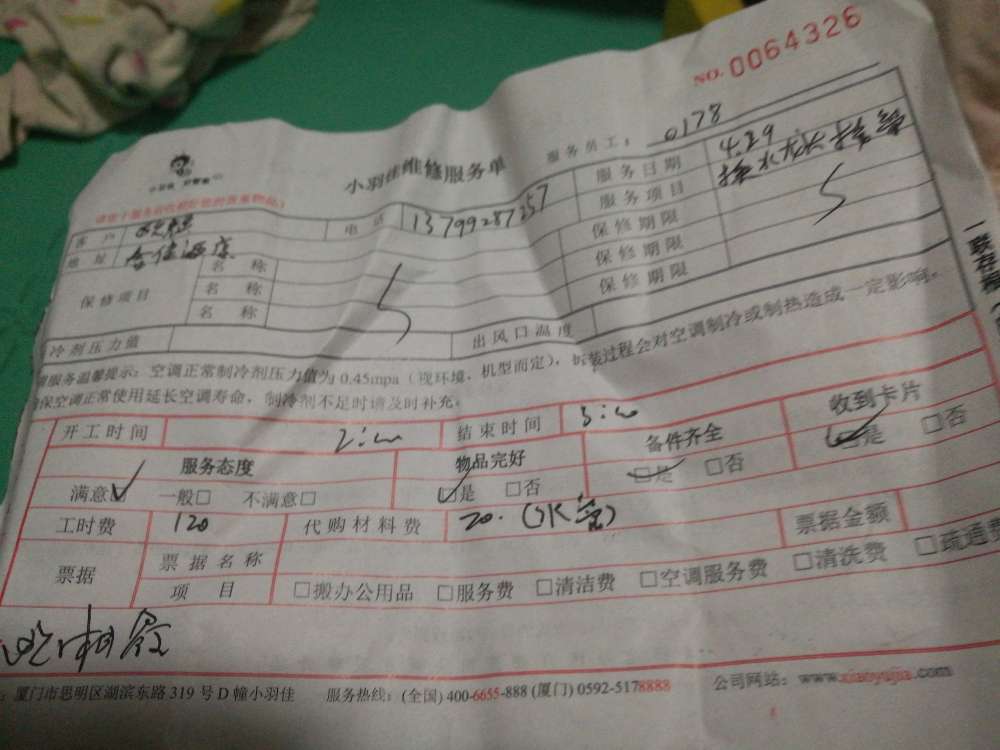 NO. 0064326
小羽佳维修服务单
服务员工: 0178
客户
电话 13799287257
服务日期 4.29
地址
服务项目 换水龙头接管
保修项目
名称
名称
名称
保修期限
保修期限
保修期限
冷剂压力值
出风口温度
服务温馨提示:空调正常制冷剂压力值为 0.45mpa(视环境、机型而定),拆装过程会对空调制冷或制热造成一定影响。
保空调正常使用延长空调寿命,制冷剂不足时请及时补充。
开工时间 2:00 结束时间 3:00
服务态度 物品完好 备件齐全 收到卡片
满意☑ 一般□ 不满意□ ☑是 □否 ☑是 □否 ☑是 □否
工时费 120 代购材料费 20.
票据金额
票据
票据名称
项目 □搬办公用品 □服务费 □清洁费 □空调服务费 □清洗费 □疏通费
:厦门市思明区湖滨东路 319 号 D 幢小羽佳 服务热线:(全国) 400-6655-888 (厦门) 0592-5178888 公司网站:www.xiaoyujia.com